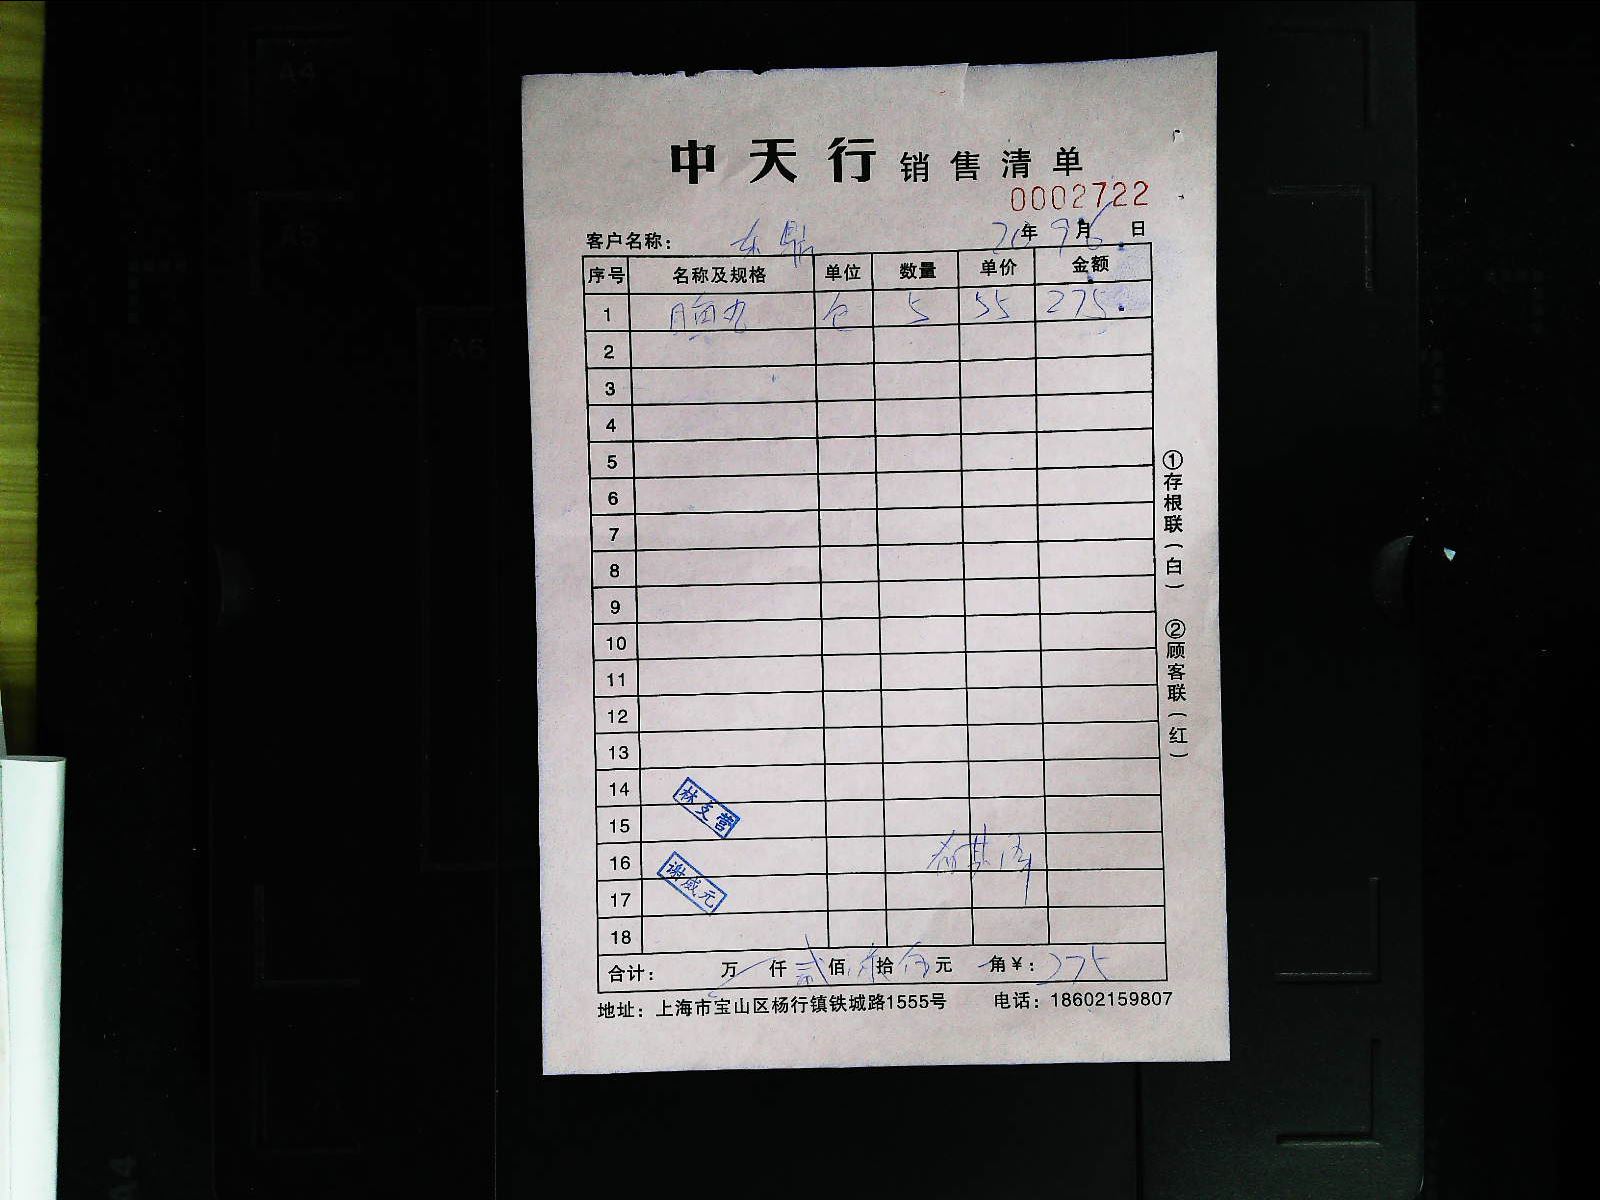 中天行 销售清单
0002722
客户名称： 东鼎 20年9月6日
序号 名称及规格 单位 数量 单价 金额
1 包 5 55 275.
2
3
4
5
6
7
8
9
10
11
12
13
14
15
16
17
18
林 营
谢威元
合计： 万 仟 贰 佰 柒 拾 伍 元 角 ¥: 275
地址：上海市宝山区杨行镇铁城路1555号 电话：18602159807
①存根联（白） ②顾客联（红）
A4
A5
A6